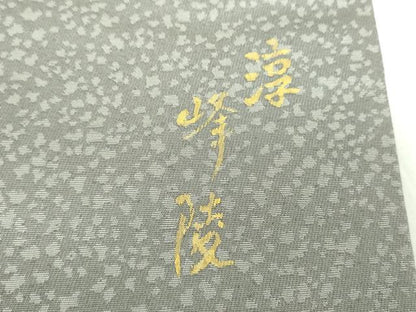 淳
峰
陵